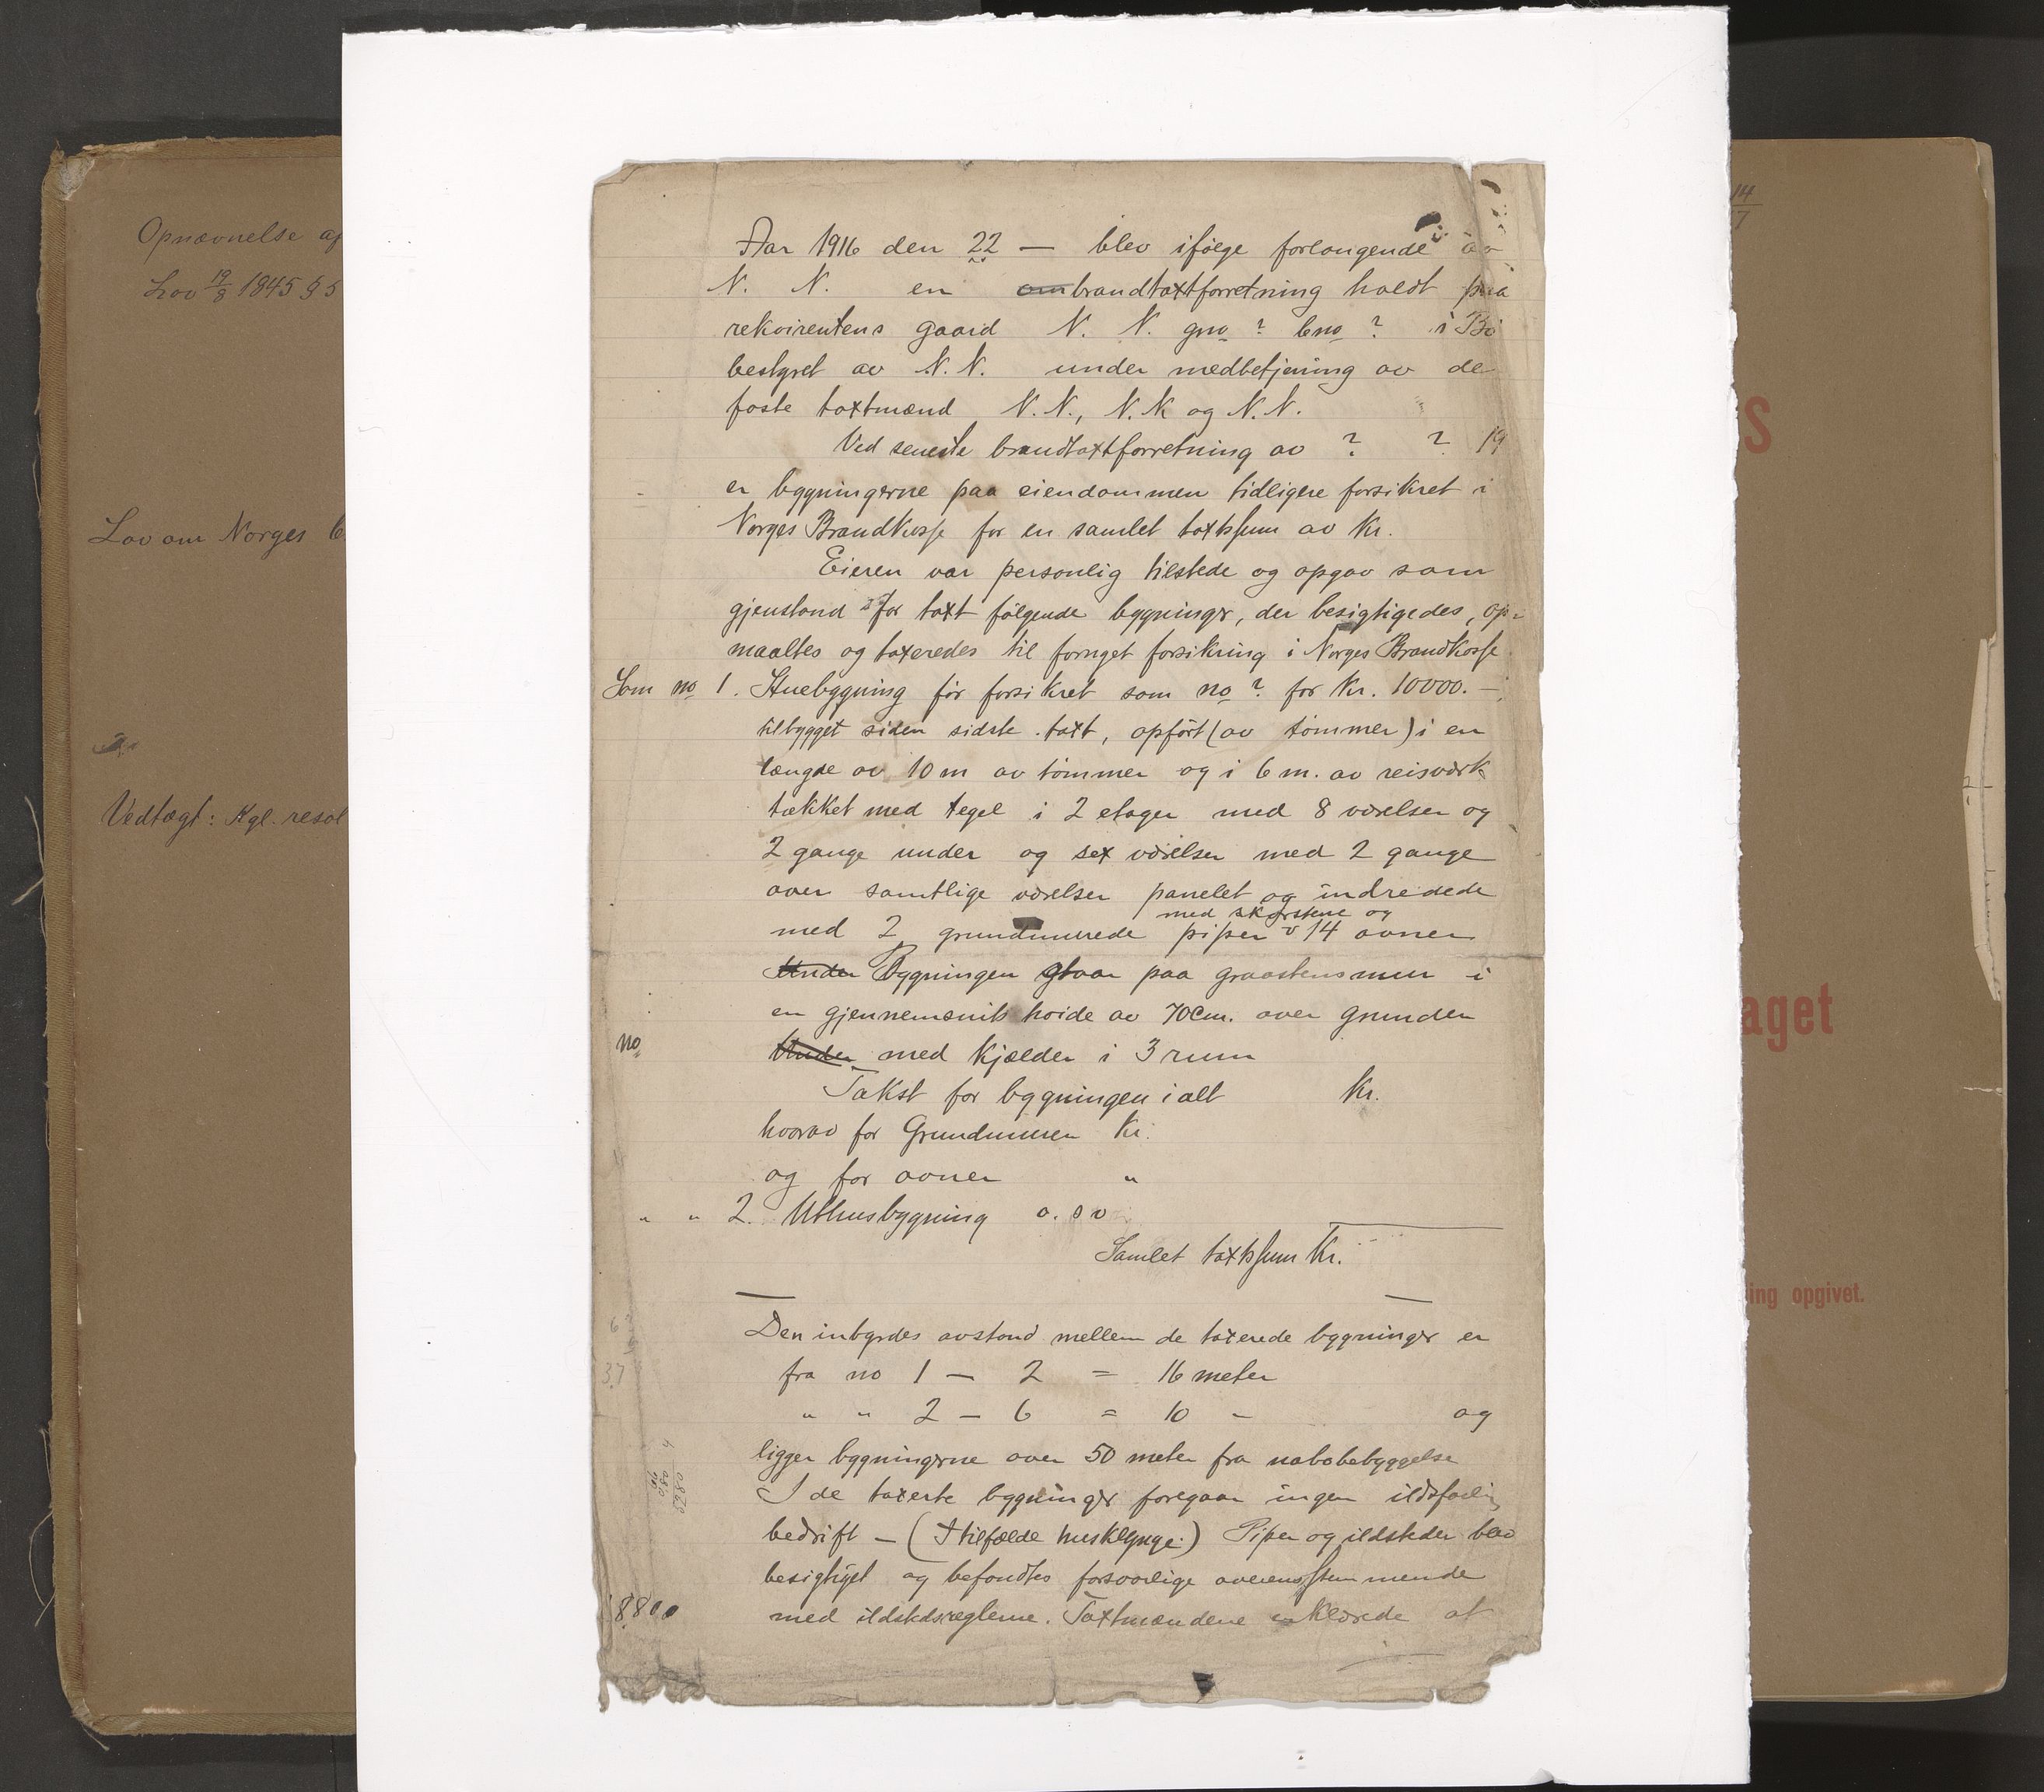 Opnævnelse af
Lov 19/8 1845 § 5
Lov om Norges b
Vedtægt: Kgl. resol
14/7
S
aget
ing opgivet.
Aar 1916 den 22 — blev ifølge forlangende av
N. N. en om brandtaxtforretning holdt paa
rekvirentens gaard N. N. gno ? bno ? i Bø
bestyret av N. N. under medbetjening av de
faste taxtmænd N. N., N. N og N. N.
Ved seneste brandtaxtforretning av ? ? 19
er bygningerne paa eiendommen tidligere forsikret i
Norges Brandkasse for en samlet taxtssum av Kr.
Eieren var personlig tilstede og opgav som
gjenstand for taxt følgende bygninger, der besigtigedes, op-
maaltes og taxeredes til fornyet forsikring i Norges Brandkasse
Som no 1. Stuebygning før forsikret som no ? for Kr. 10000. —
tilbygget siden sidste taxt, opført (av tømmer) i en
længde av 10 m av tømmer og i 6 m. av reisværk
tækket med tegel i 2 etager med 8 værelser og
2 gange under og sex værelser med 2 gange
over samtlige værelser panelet og indredede
med skorstene og
med 2 grundmurede piper v 14 ovner
Under Bygningen staar paa graastensmur i
en gjennemsnits høide av 70 cm. over grunden
no
Under med kjælder i 3 rum
Takst for bygningen ialt Kr.
hvorav for Grundmuren Kr.
og for ovner "
" " 2. Uthusbygning o. s v
Samlet taxtssum Kr.
Den inbyrdes avstand mellem de taxerede bygninger er
fra no 1 — 2 = 16 meter
37
" " 2 — 6 = 10 - og
ligger bygningerne over 50 meter fra nabobebyggelse
5280
I de taxerte bygninger foregaar ingen ildsfarlig
bedrift — (I tilfælde husklynge.) Piper og ildsteder blev
besigtiget og befandtes forsvarlige overensstemmende
8800
med ildstedsreglerne. Taxtmændene erklærede at